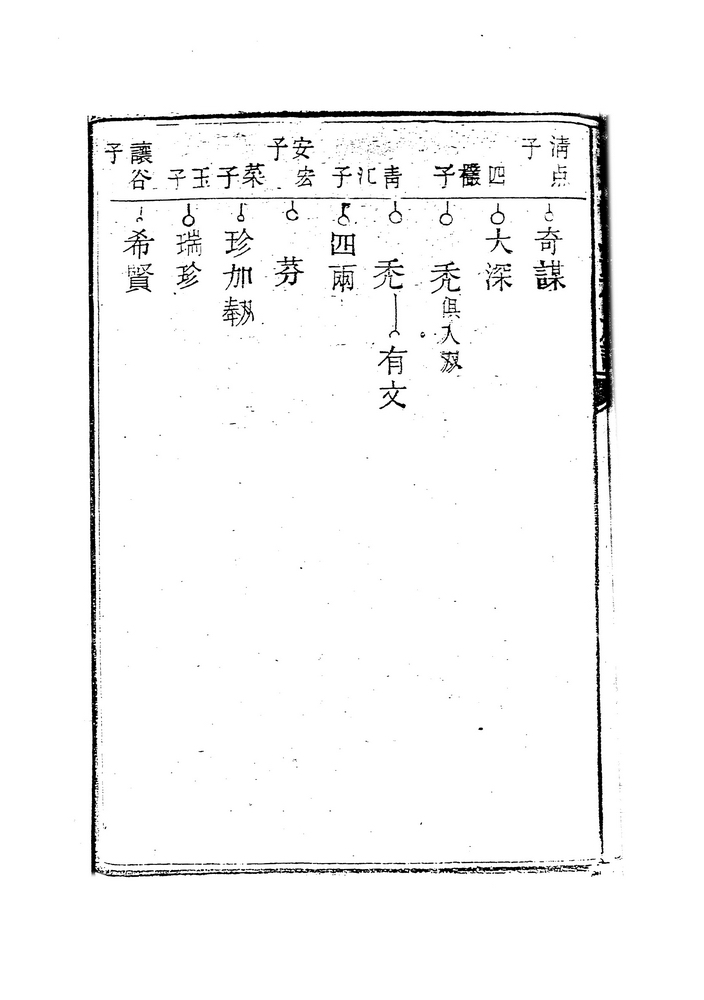 清点子
奇謀
四
大深
子
禿俱人
青江子
禿
有文
子
四兩
安宏子
芬
菜子
珍加
玉子
瑞珍
讓谷子
希賢